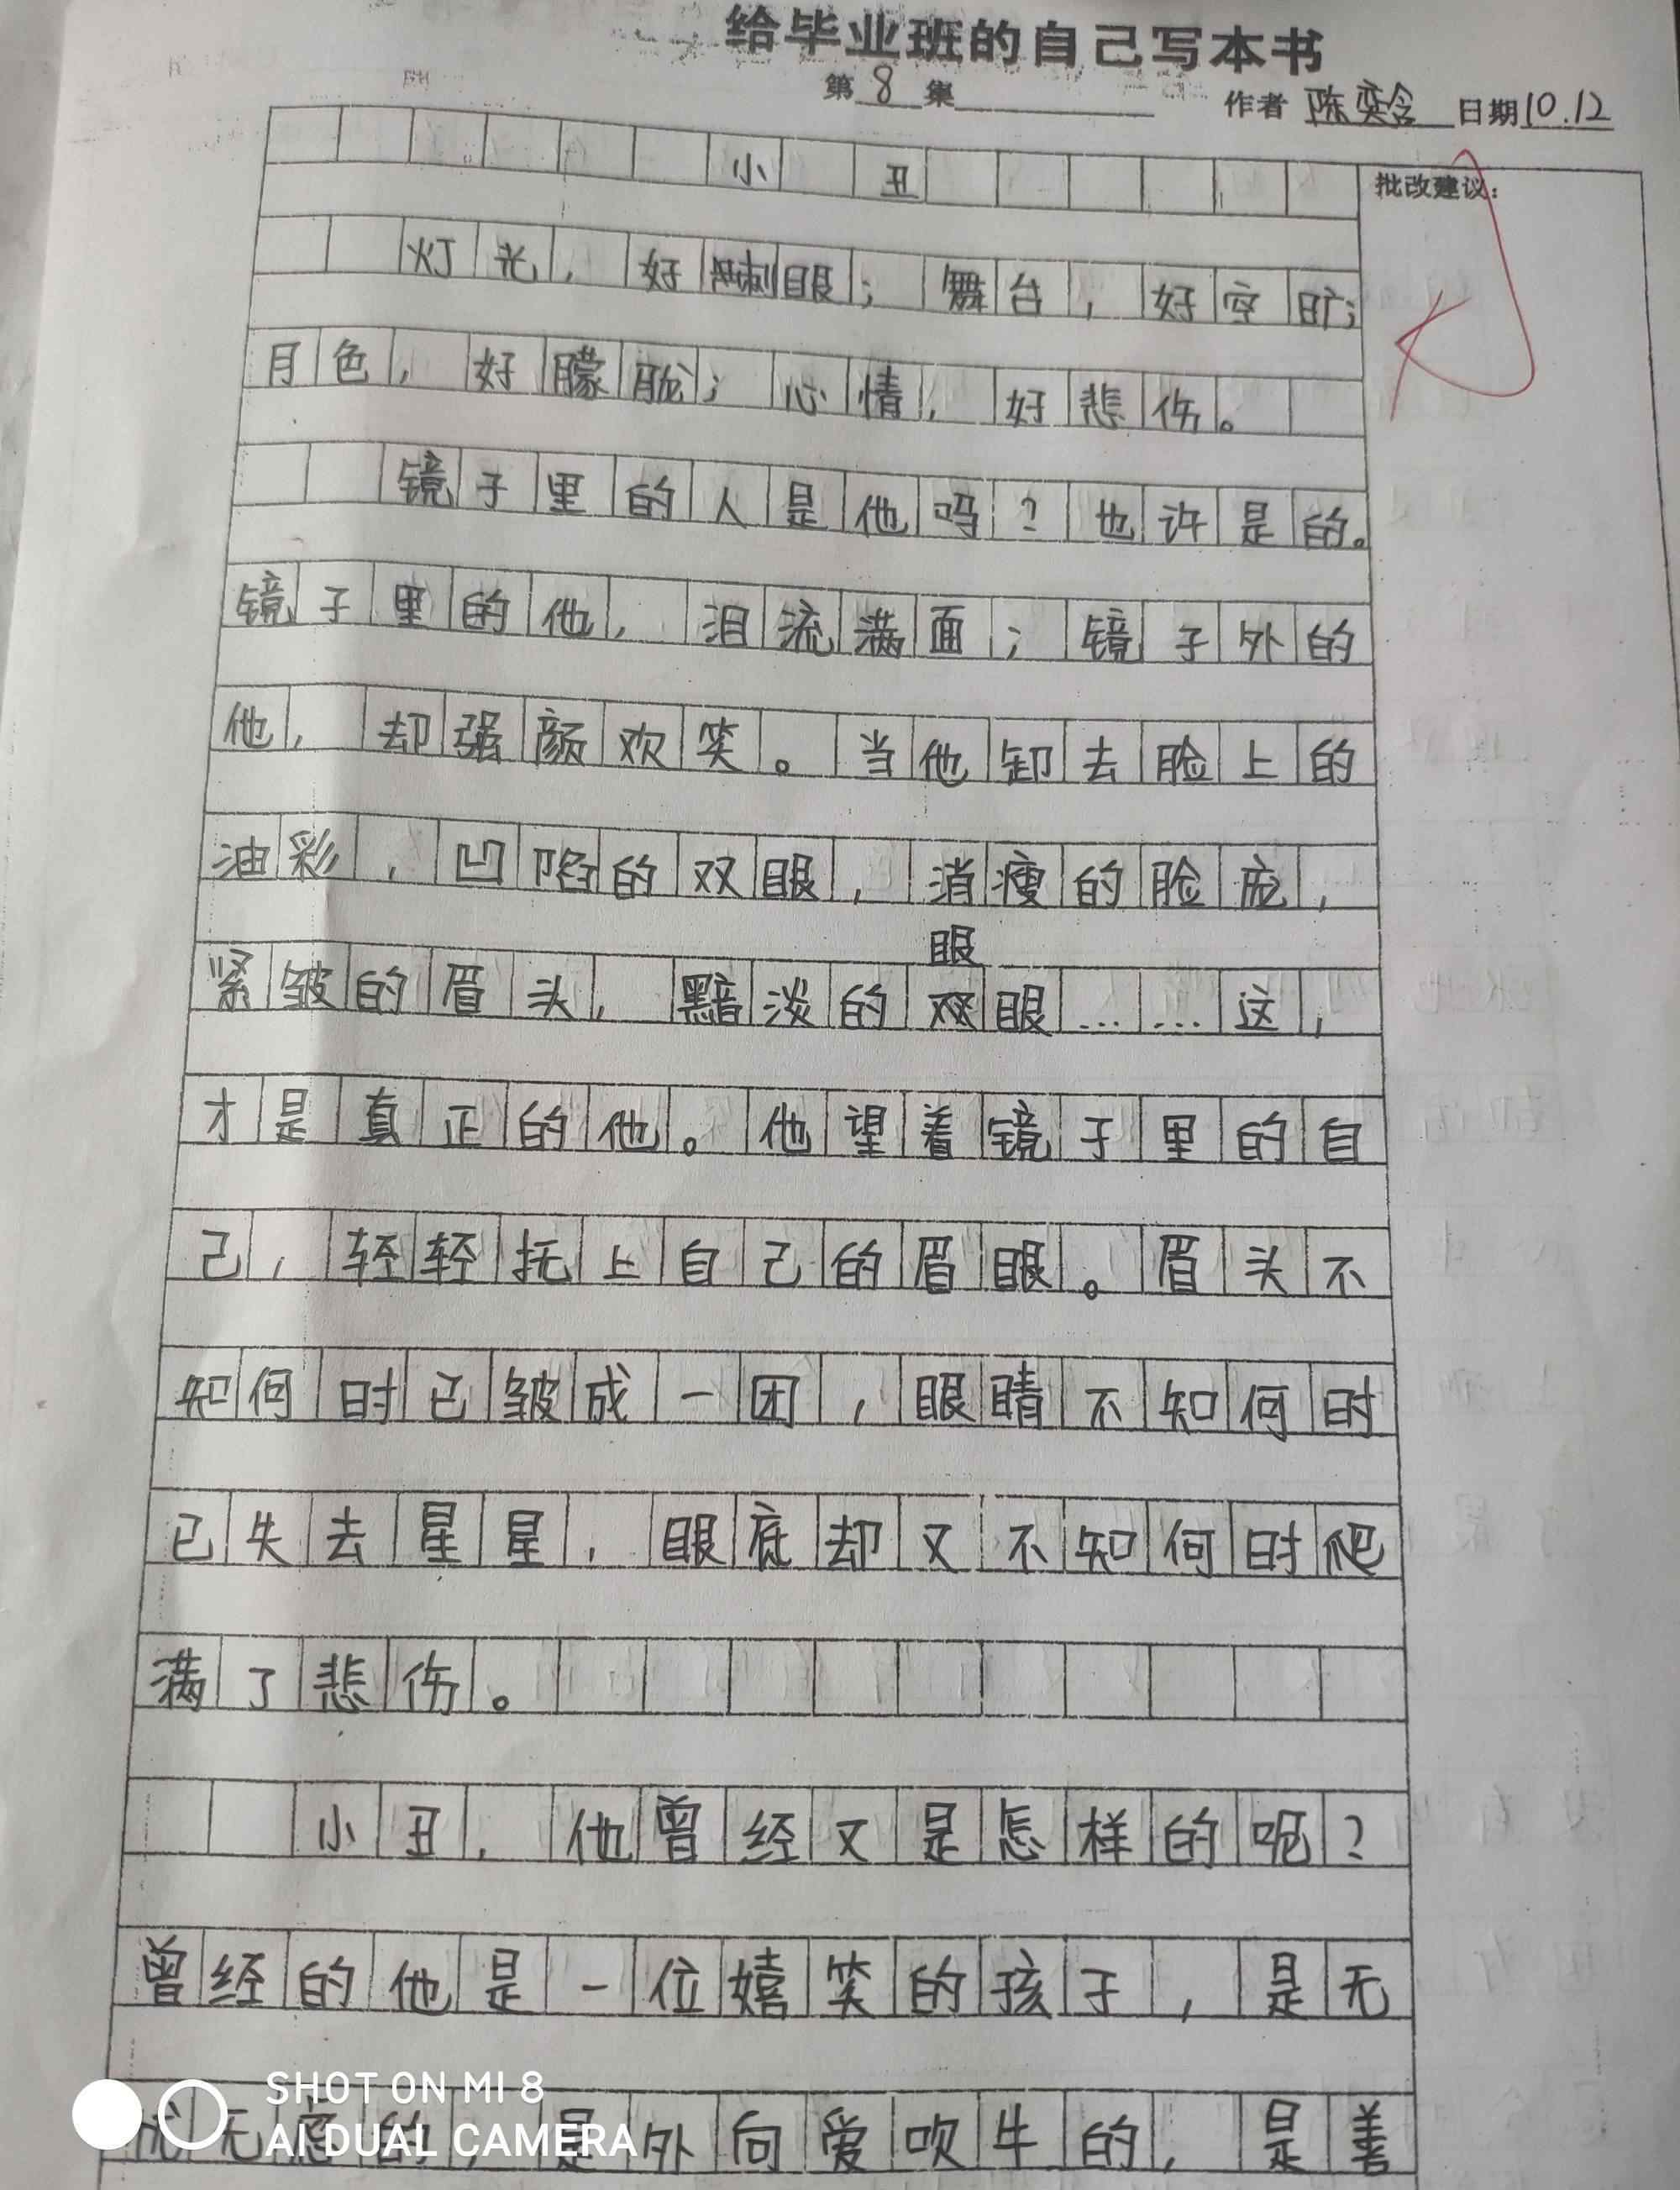 给毕业班的自己写本书
第 8 集 作者 陈奕含 日期 10.12
小丑
批改建议：
灯光，好刺眼；舞台，好空旷；
月色，好朦胧；心情，好悲伤。
镜子里的人是他吗？也许是的。
镜子里的他，泪流满面；镜子外的
他，却强颜欢笑。当他卸去脸上的
油彩，凹陷的双眼，消瘦的脸庞，
眼
紧皱的眉头，黯淡的双眼……这，
才是真正的他。他望着镜子里的自
己，轻轻抚上自己的眉眼。眉头不
知何时已皱成一团，眼睛不知何时
已失去星星，眼底却又不知何时爬
满了悲伤。
小丑，他曾经又是怎样的呢？
曾经的他是一位嬉笑的孩子，是无
忧无虑的，是外向爱吹牛的，是善
SHOT ON MI 8
AI DUAL CAMERA